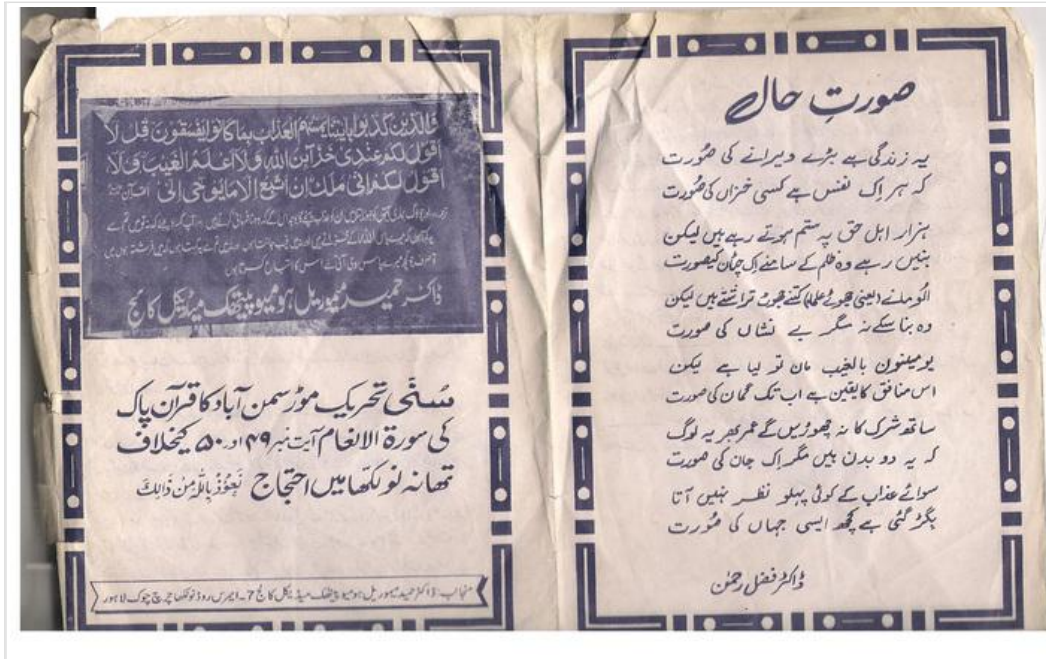 صورتِ حال
یہ زندگی ہے بڑے ویرانے کی صُورت
کہ ہر اِک نفس ہے کسی خزاں کی صُورت
ہزار اہلِ حق پہ ستم ہوتے رہے ہیں لیکن
بنیں رہے وہ ظلم کے سامنے اِک چٹان کیصورت
کتنے جھوٹ تراشتے ہیں لیکن
وہ بنا سکے نہ مگر بے نشاں کی صورت
یومِنُون بالغیب مان تو لیا ہے لیکن
اس منافق کا یقین ہے اب تک گمان کی صورت
ساتھ شرک کا نہ چھوڑیں گے عمر بھر یہ لوگ
کہ یہ دو بدن ہیں مگر اِک جان کی صورت
سوائے عذاب کے کوئی پہلو نظر نہیں آتا
بگڑ گئی ہے کچھ ایسی جہاں کی صُورت
ڈاکٹر فضل رحمٰن
وَالَّذِينَ كَذَّبُوا بِآيَاتِنَا يَمَسُّهُمُ الْعَذَابُ بِمَا كَانُوا يَفْسُقُونَ قُلْ لَا
اَقُولُ لَكُمْ عِنْدِي خَزَآئِنُ اللهِ وَلَا اَعْلَمُ الْغَيْبَ وَلَا
اَقُولُ لَكُمْ اِنِّي مَلَكٌ اِنْ اَتَّبِعُ اِلَّا مَا يُوحٰى اِلَيَّ
ڈاکٹر حمید میموریل ہومیوپیتھک میڈیکل کالج
سُنّی تحریک موڑ سمن آباد کا قرآن پاک
کی سورۃ الانعام آیت نمبر ۴۹ اور ۵۰ کیخلاف
تھانہ نولکھا میں احتجاج نَعُوْذُ بِاللّٰہِ مِنْ ذَالِکَ
منجانب: ڈاکٹر حمید میموریل ہومیوپیتھک میڈیکل کالج 7۔ ایمپرس روڈ نولکھا چرچ چوک لاہور